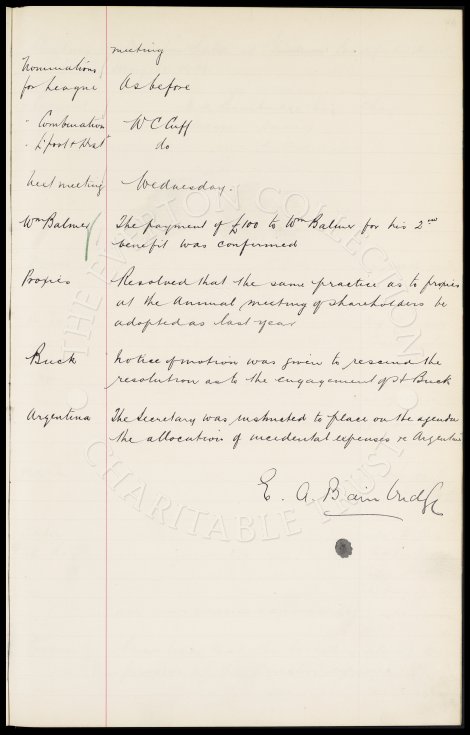 meeting
Nominations
for League As before
" Combination W C Cuff
" L'pool & Dist do
Next meeting Wednesday.
Wm Balmer The payment of £100 to Wm Balmer for his 2nd
benefit was confirmed
Proxies Resolved that the same practice as to proxies
at the Annual meeting of shareholders be
adopted as last year
Buck Notice of motion was given to rescind the
resolution as to the engagement of Buck
Argentina The Secretary was instructed to place on the agenda
the allocation of incidental expenses re Argentine
E. A. Bainbridge
THE EVERTON COLLECTION
CHARITABLE TRUST